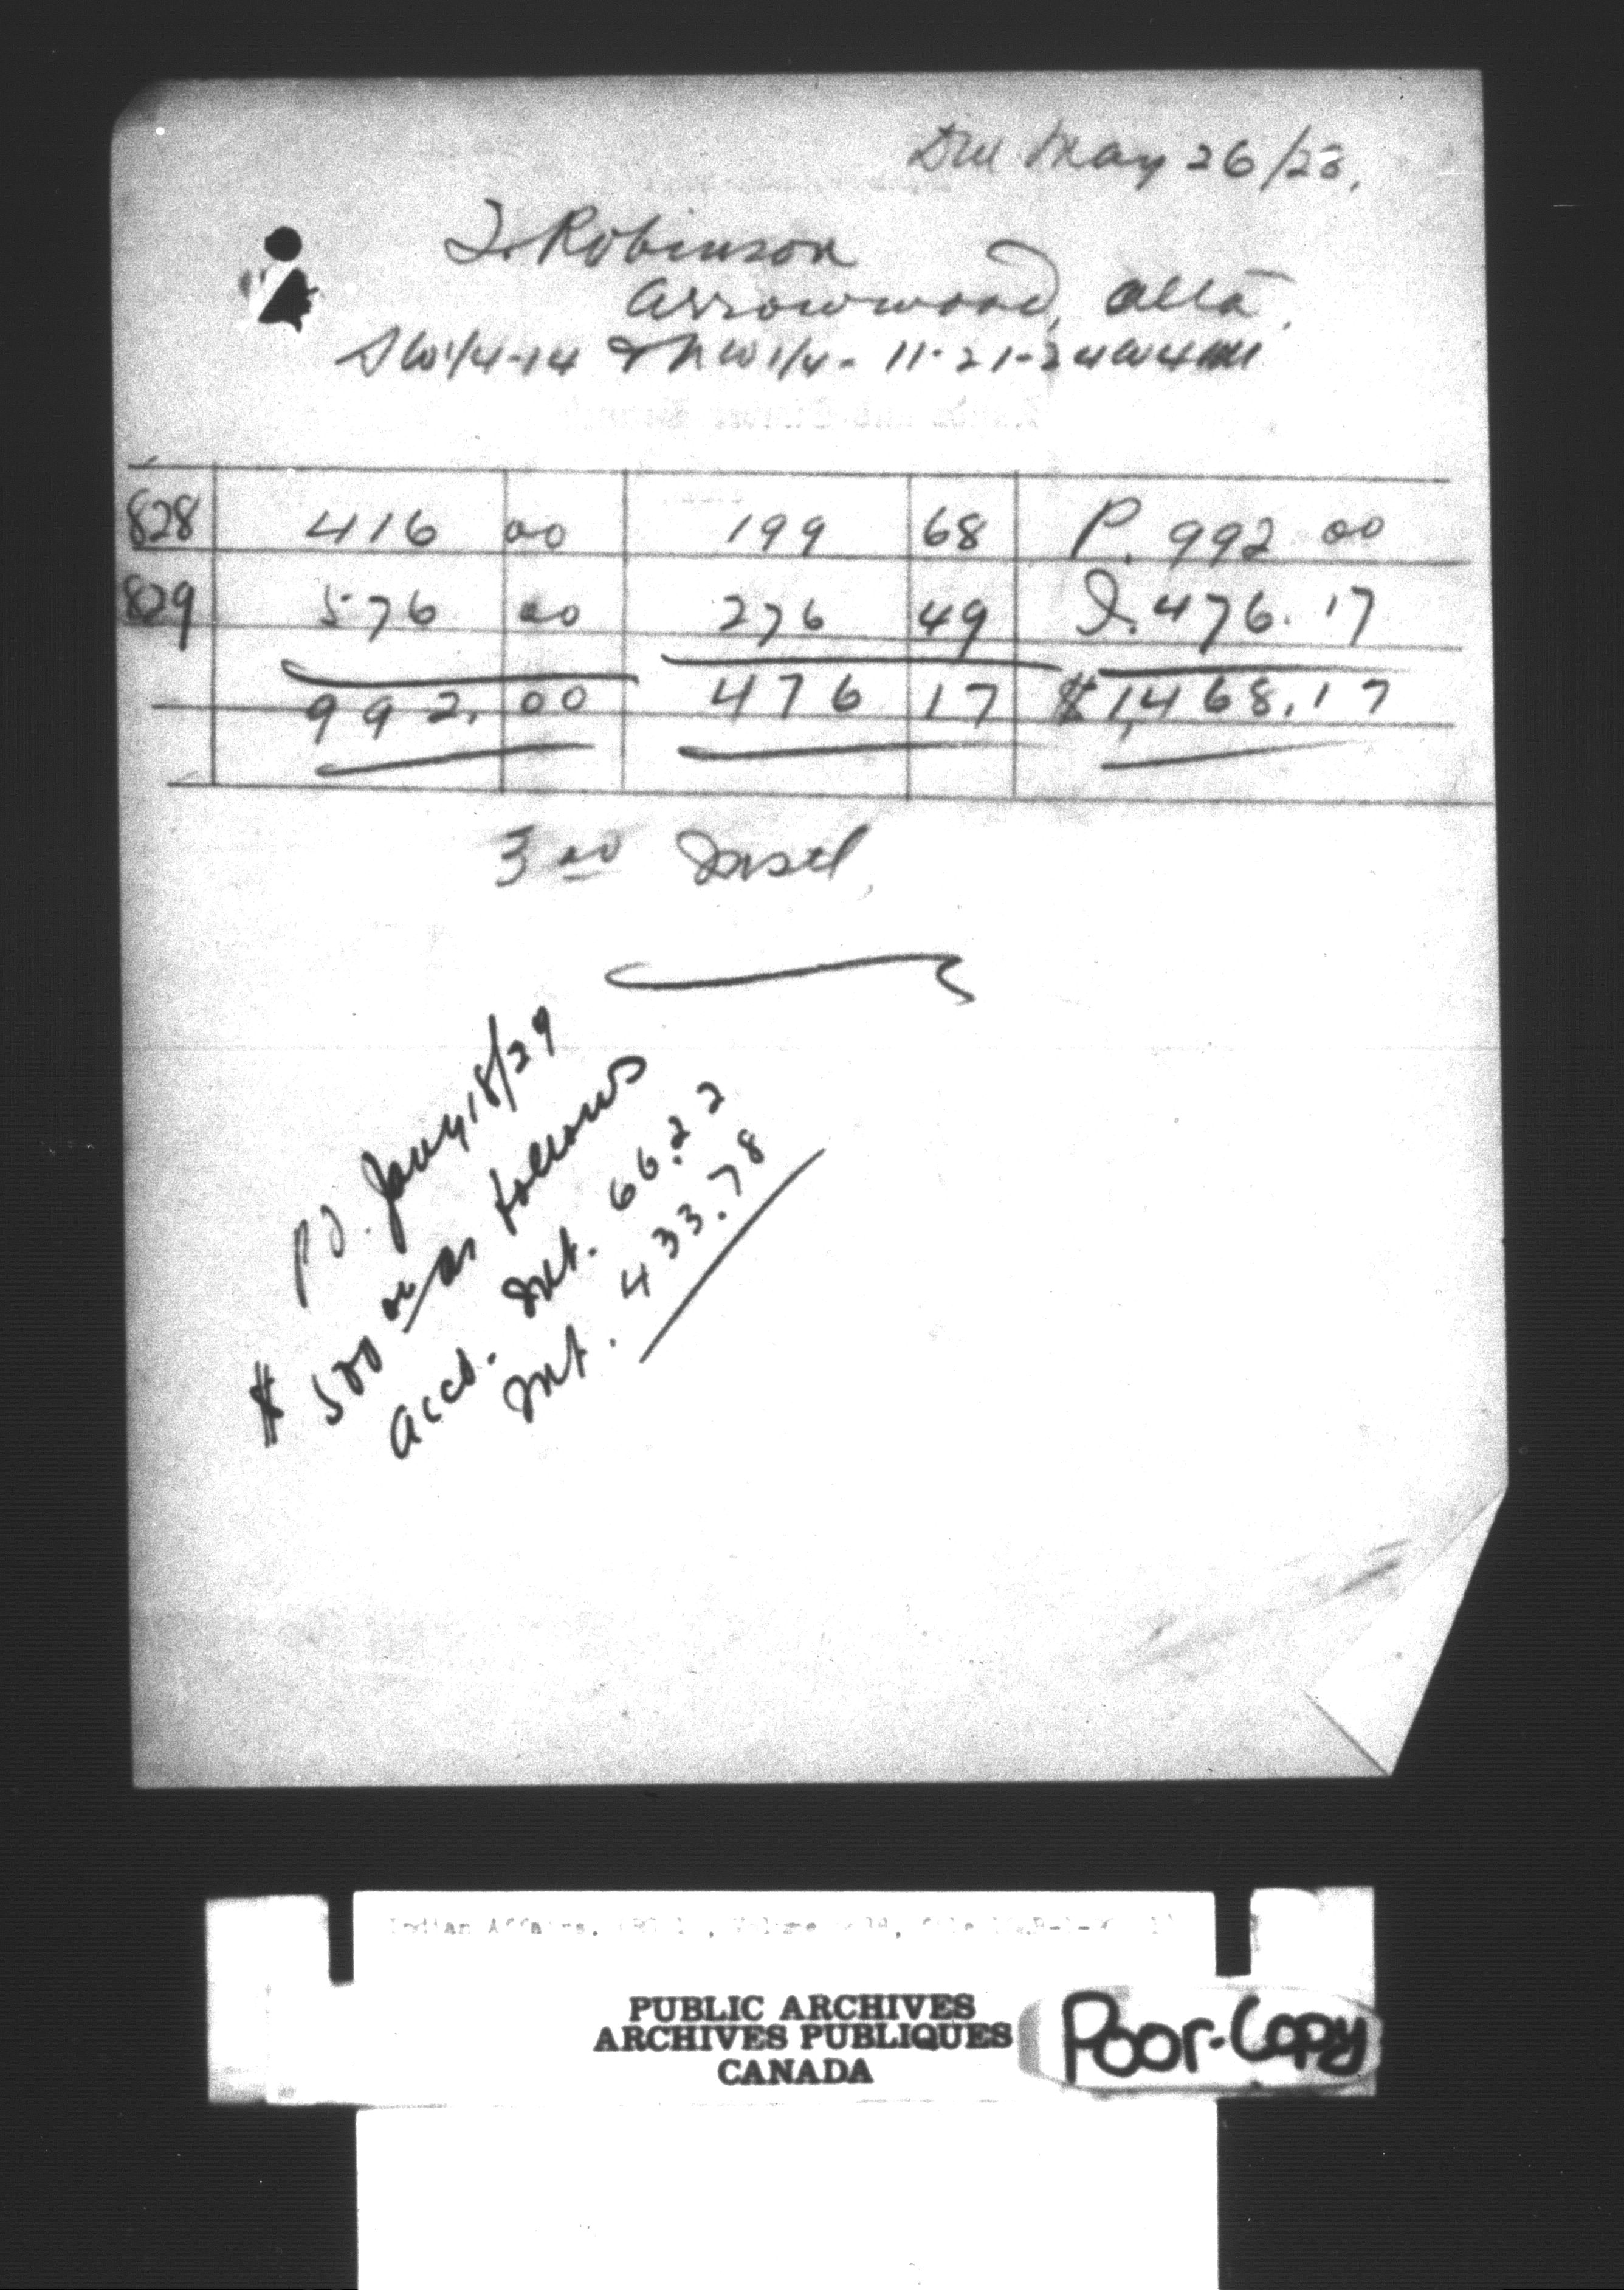 Due May 26/23.
J. Robinson
Arrowwood, Alta.
SW1/4-14 & NW1/4-11-21-24W4M
828 416 00 199 68 P. 992 00
829 576 00 276 49 I. 476.17
992.00 476 17 $1,468.17
3rd Instl,
Pd. Jany 18/29
$500 00 as follows
Accd. Int. 66.22
Int. 433.78
Indian Affairs.
PUBLIC ARCHIVES
ARCHIVES PUBLIQUES
CANADA
Poor-Copy